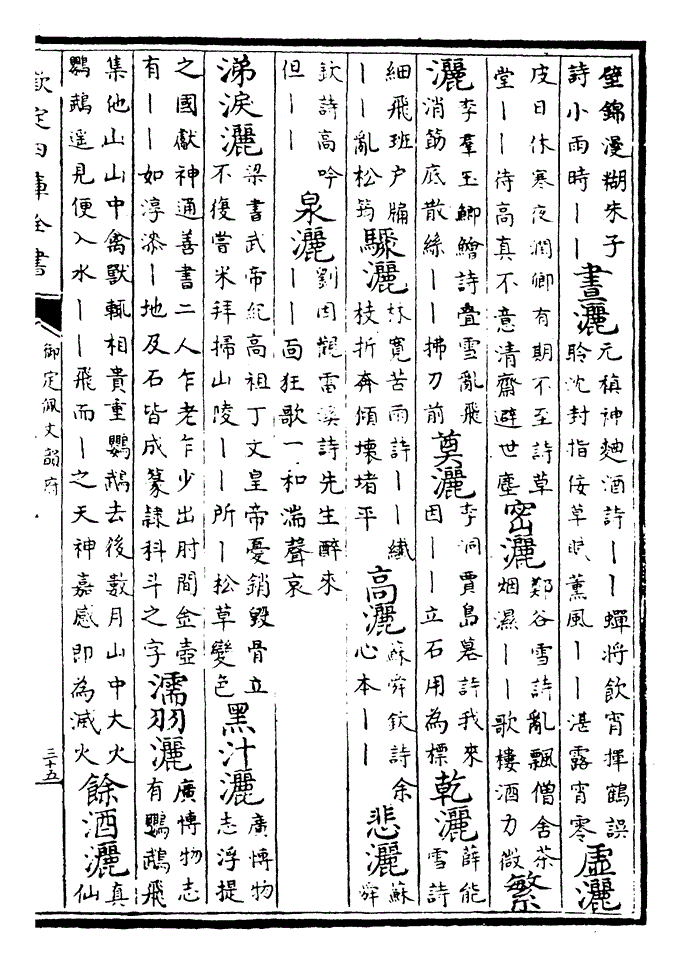 壁錦漫糊朱子
詩小雨時丨丨
晝灑
元稹神麯酒詩丨丨蟬將飲宵揮鶴誤
聆沈封指佞草眠薰風丨丨湛露宵零
虛灑
皮日休寒夜潤卿有期不至詩草
堂丨丨待高真不意清齋避世塵
密灑
鄭谷雪詩亂飄僧舍茶
烟濕丨丨歌樓酒力微
繁
灑
李羣玉鯽鱠詩疊雪亂飛
消筯底散絲丨丨拂刀前
奠灑
李洞賈島墓詩我來
因丨丨立石用為標
乾灑
薛能
雪詩
細飛班户牖
丨丨亂松筠
驟灑
林寛苦雨詩丨丨纎
枝折奔傾壊堵平
高灑
蘇舜欽詩余
心本丨丨
悲灑
蘇
舜
欽詩高吟
但丨丨
泉灑
劉因觀雷溪詩先生醉來
丨丨面狂歌一和湍聲哀
涕淚灑
梁書武帝紀高祖丁文皇帝憂銷毀骨立
不復嘗米拜掃山陵丨丨所丨松草變色
黑汁灑
廣博物
志浮提
之國獻神通善書二人乍老乍少出肘間金壺
有丨丨如淳漆丨地及石皆成篆隸科斗之字
濡羽灑
廣博物志
有鸚鵡飛
集他山山中禽獸輒相貴重鸚鵡去後數月山中大火
鸚鵡遥見便入水丨丨飛而丨之天神嘉感即為滅火
餘酒灑
真
仙
欽定四庫全書
御定佩文韻府
三十五